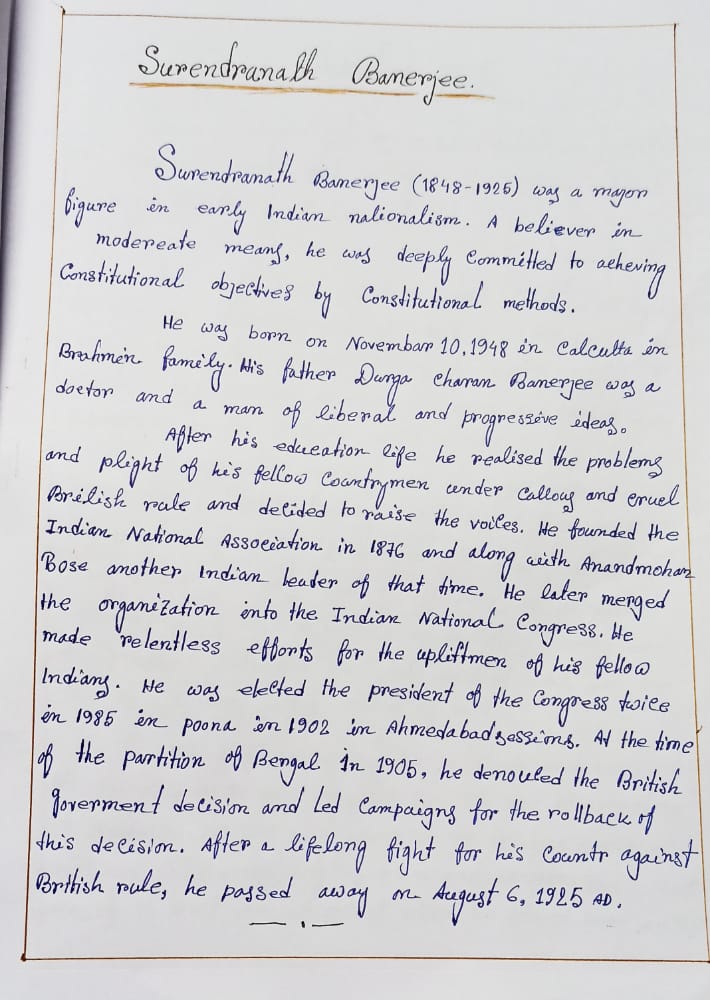 Surendranath Banerjee.
Surendranath Banerjee (1848-1925) was a major
figure in early Indian nationalism. A believer in
modereate means, he was deeply Committed to acheving
Constitutional objectives by Constitutional methods.
He was born on Novembar 10, 1948 in Calcutta in
Brahmin family. His father Durga Charan Banerjee was a
doctor and a man of liberal and progressive ideas.
After his education life he realised the problems
and plight of his fellow Countrymen under Callous and cruel
British rule and decided to raise the voices. He founded the
Indian National Association in 1876 and along with Anandmohan
Bose another Indian leader of that time. He later merged
the organization into the Indian National Congress. He
made relentless efforts for the upliftmen of his fellow
Indians. He was elected the president of the Congress twice
in 1985 in poona in 1902 in Ahmedabad sessions. At the time
of the partition of Bengal in 1905, he denouled the British
goverment decision and Led Campaigns for the rollback of
this decision. After a lifelong fight for his Countr against
Brthish rule, he passed away on August 6, 1925 AD.